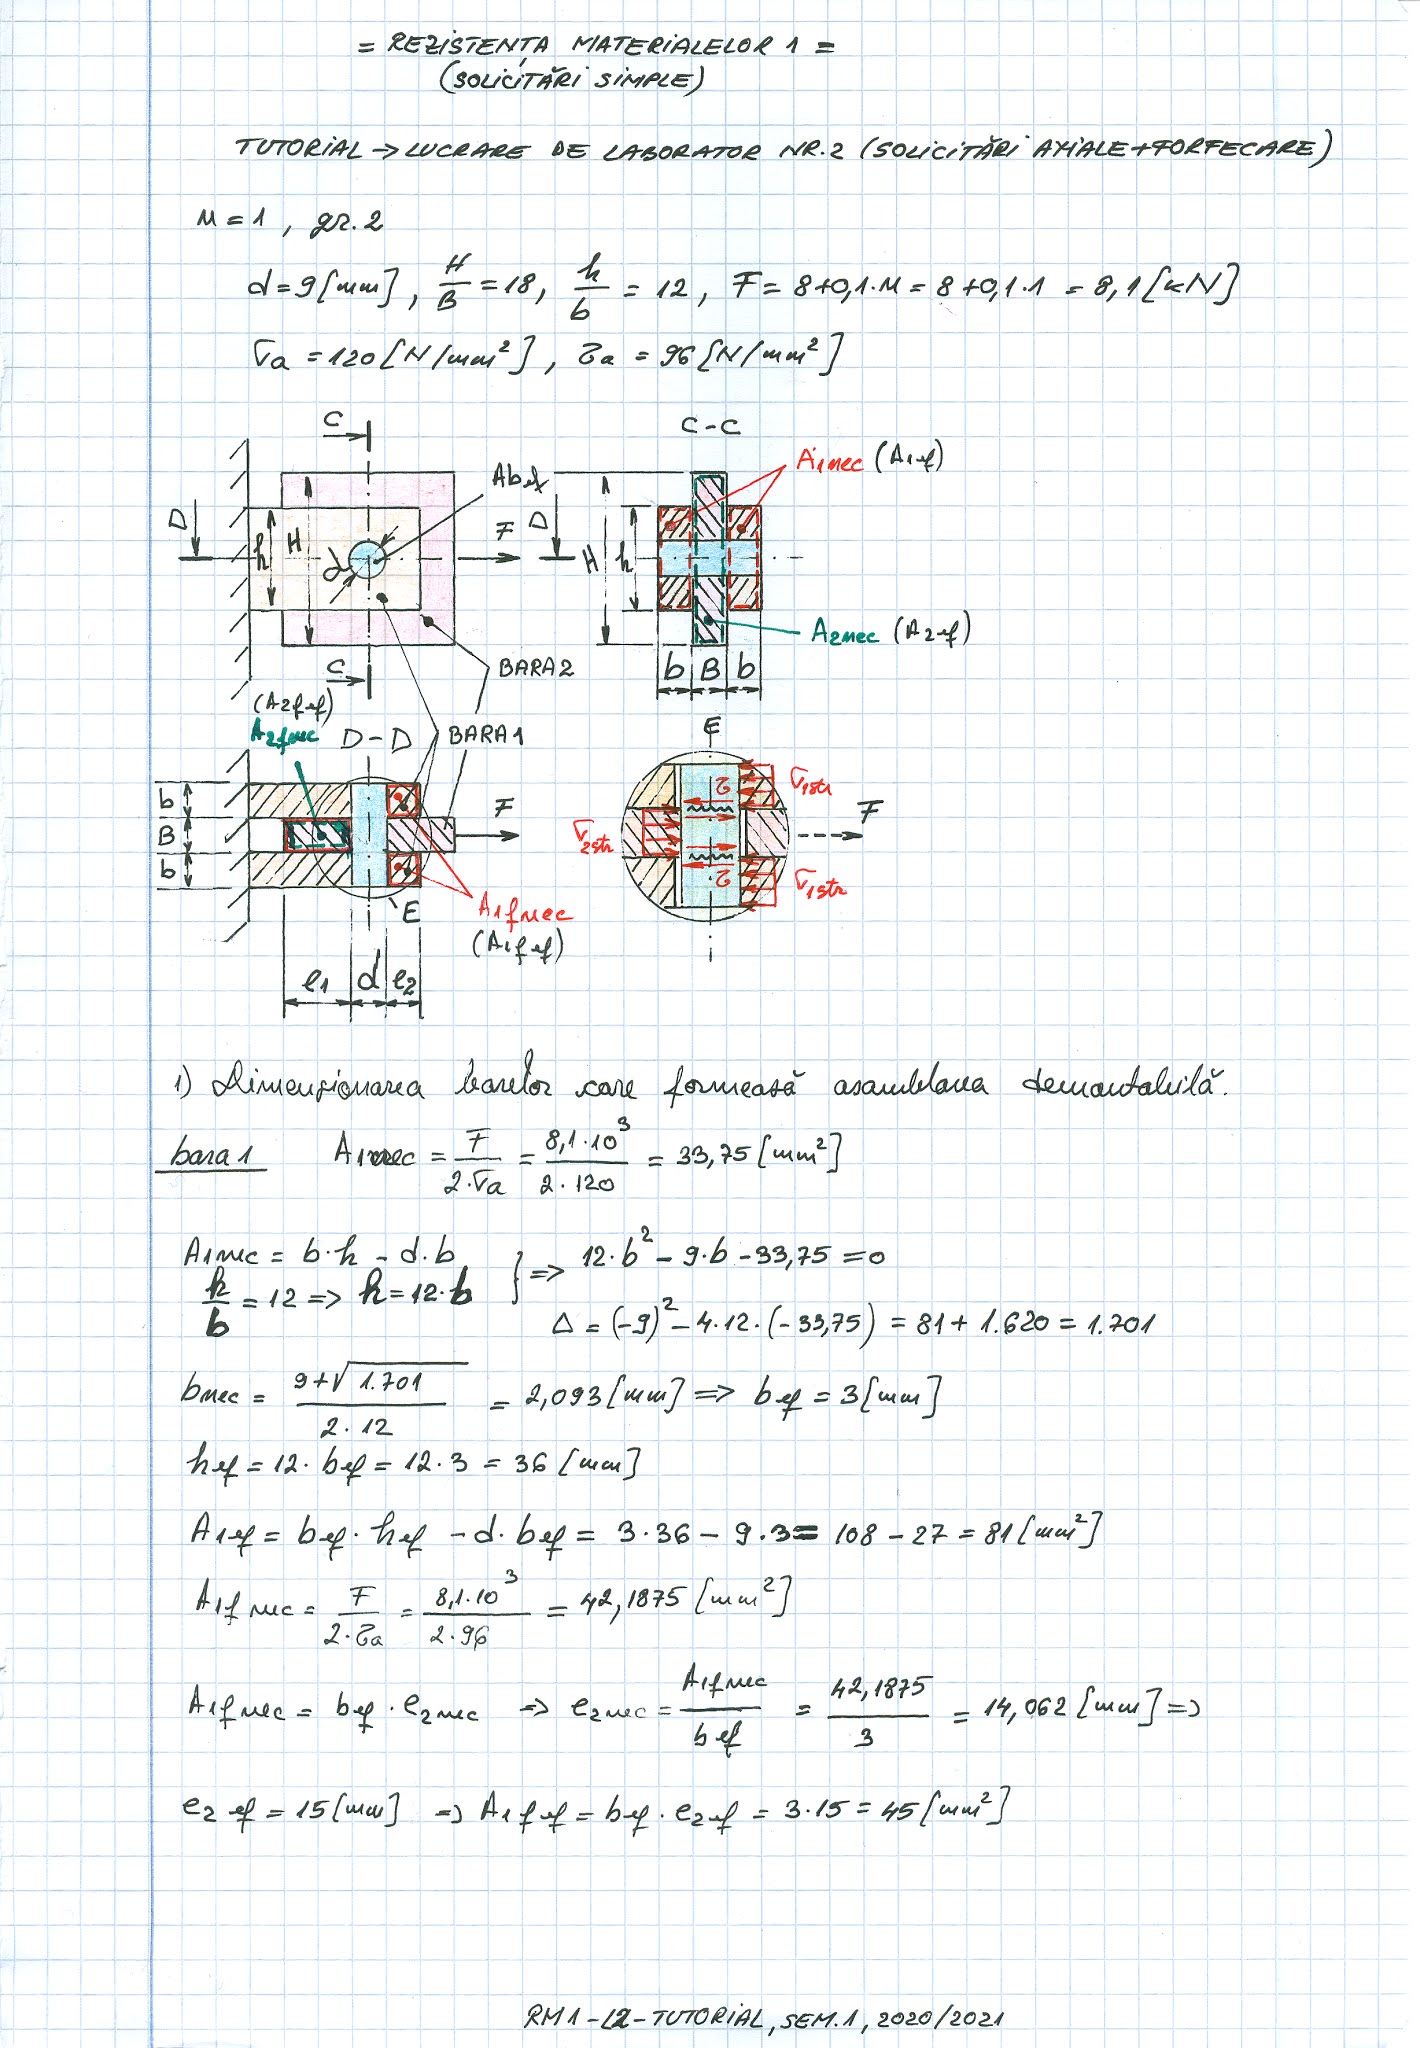 = REZISTENȚA MATERIALELOR 1 =
(SOLICITĂRI SIMPLE)
TUTORIAL → LUCRARE DE LABORATOR NR.2 (SOLICITĂRI AXIALE+FORFECARE)
n = 1 , gr. 2
d = 9 [mm] , H/B = 18 , h/b = 12 , F = 8+0,1·n = 8+0,1·1 = 8,1 [kN]
σa = 120 [N/mm²] , τa = 96 [N/mm²]
C
C-C
A1nec (A1ef)
Abef
D
h
H
d
F
D
H
h
A2nec (A2ef)
C
BARA2
b B b
(A2fef)
A2fnec
D-D
BARA1
E
b
B
b
F
τ
σ1str
σ2str
F
τ
σ1str
E
A1fnec
(A1fef)
e1 d e2
1) Dimensionarea barelor care formează asamblarea demontabilă.
bara 1 A1nec = F/(2·σa) = 8,1·10³/(2·120) = 33,75 [mm²]
A1nec = b·h - d·b } => 12·b² - 9·b - 33,75 = 0
h/b = 12 => h = 12·b
Δ = (-9)² - 4·12·(-33,75) = 81 + 1.620 = 1.701
bnec = (9+√1.701)/(2·12) = 2,093 [mm] => bef = 3 [mm]
hef = 12·bef = 12·3 = 36 [mm]
A1ef = bef·hef - d·bef = 3·36 - 9·3 = 108 - 27 = 81 [mm²]
A1fnec = F/(2·τa) = 8,1·10³/(2·96) = 42,1875 [mm²]
A1fnec = bef·e2nec => e2nec = A1fnec/bef = 42,1875/3 = 14,062 [mm] =>
e2ef = 15 [mm] => A1fef = bef·e2ef = 3·15 = 45 [mm²]
RM1-L2-TUTORIAL, SEM.1, 2020/2021